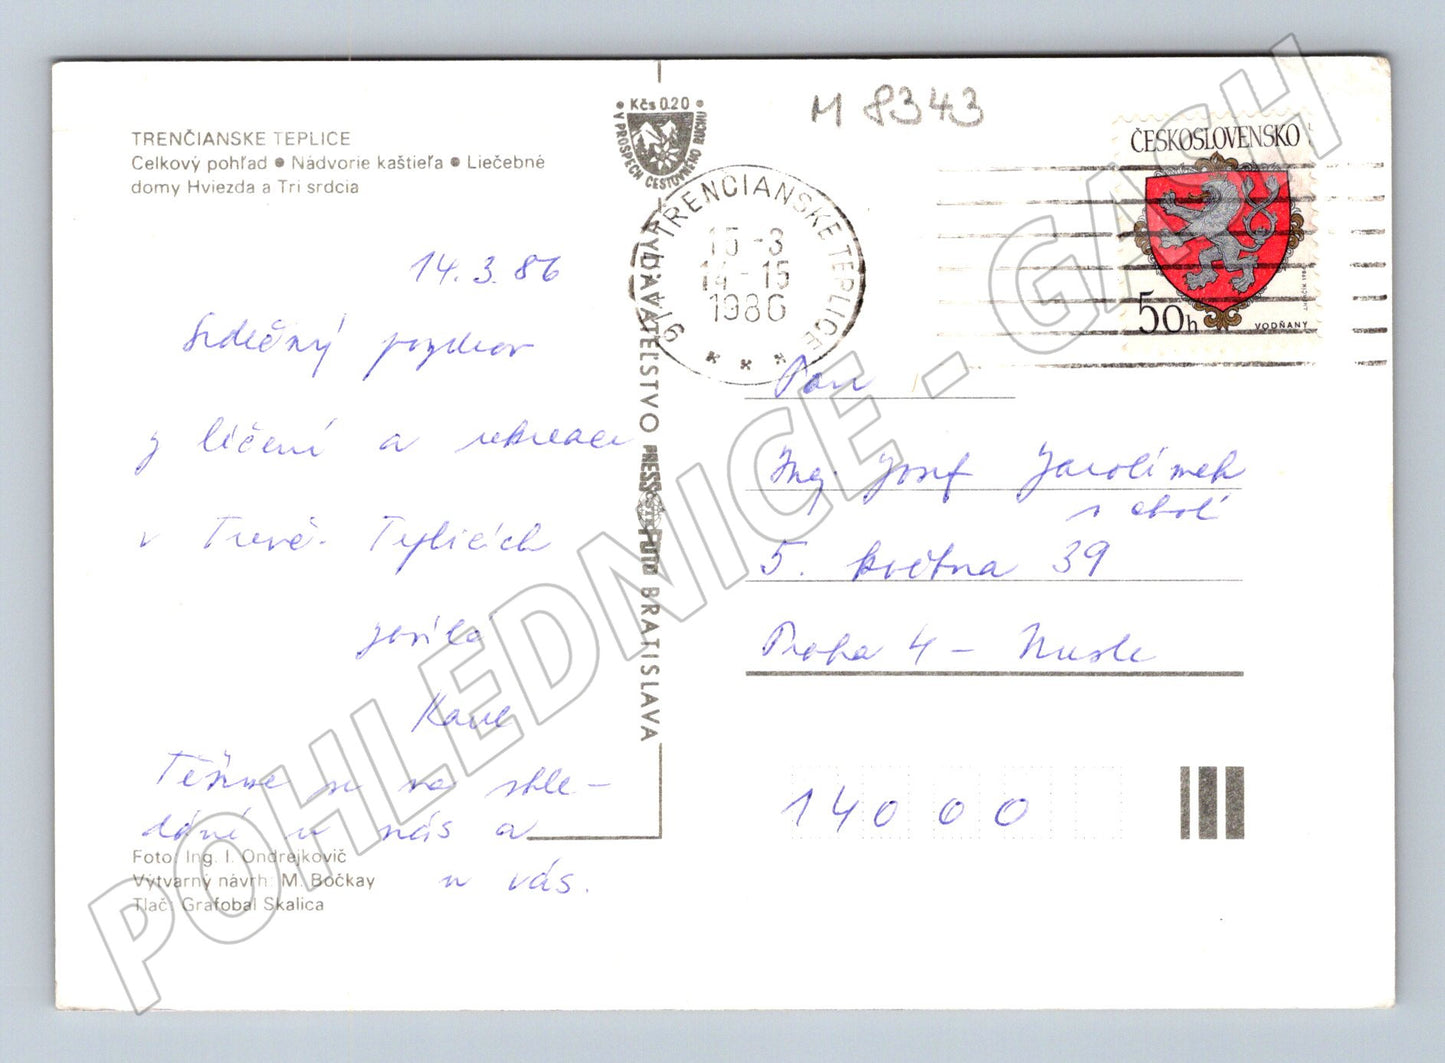 TRENČIANSKE TEPLICE
Celkový pohľad ● Nádvorie kaštieľa ● Liečebné
domy Hviezda a Tri srdcia
14.3.86
Srdečný pozdrav
z léčení a rekreace
v Trenč. Teplicích
posílá
Těšíme se na shle-
dání u nás a
u vás.
Foto: Ing. I. Ondrejkovič
Výtvarný návrh: M. Bočkay
Tlač: Grafobal Skalica
• Kčs 0.20 •
V PROSPECH CESTOVNÉHO RUCHU
VYDAVATEĽSTVO PRESSFOTO BRATISLAVA
M 8343
TRENČIANSKE TEPLICE
15-3
14-15
1986
914 16
* * *
ČESKOSLOVENSKO
50h
VODŇANY
Pan
Ing. Josef Jarolímek
s chotí
5. května 39
Praha 4 - Nusle
14000
POHLEDNICE - GASH